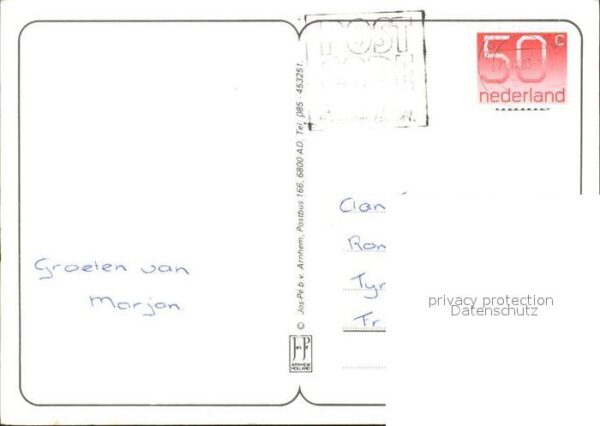 POST
CODE
50 c
nederland
© Jos-Pé b.v. Arnhem, Postbus 166, 6800 A.D. Tel. 085 - 453251.
Groeten van
Marjan
Clan
Ron
Tyr
Fr
privacy protection
Datenschutz
JosPé
ARNHEM
HOLLAND